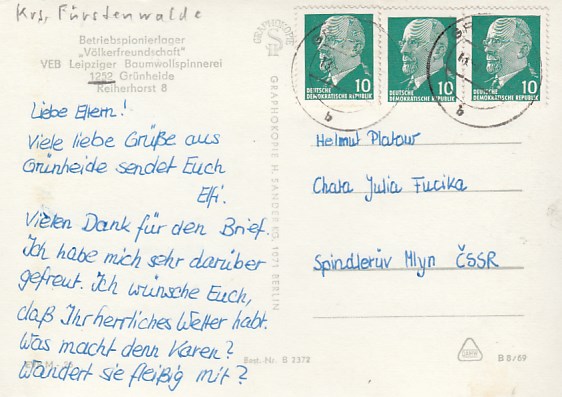 Krs. Fürstenwalde
Betriebspionierlager
„Völkerfreundschaft"
VEB Leipziger Baumwollspinnerei
1252 Grünheide
Reiherhorst 8
Liebe Eltern!
Viele liebe Grüße aus
Grünheide sendet Euch
Elfi.
Vielen Dank für den Brief.
Ich habe mich sehr darüber
gefreut. Ich wünsche Euch,
daß Ihr herrliches Wetter habt.
Was macht denn Karen?
Wandert sie fleißig mit?
Best.-Nr. B 2372
GRAPHOKOPIE
GRAPHOKOPIE H. SANDER KG, 1071 BERLIN
10
DEUTSCHE
DEMOKRATISCHE REPUBLIK
10
DEUTSCHE
DEMOKRATISCHE REPUBLIK
10
DEUTSCHE
DEMOKRATISCHE REPUBLIK
b
b
Helmut Platow
Chata Julia Fucika
Spindlerův Mlyn ČSSR
B 8/69